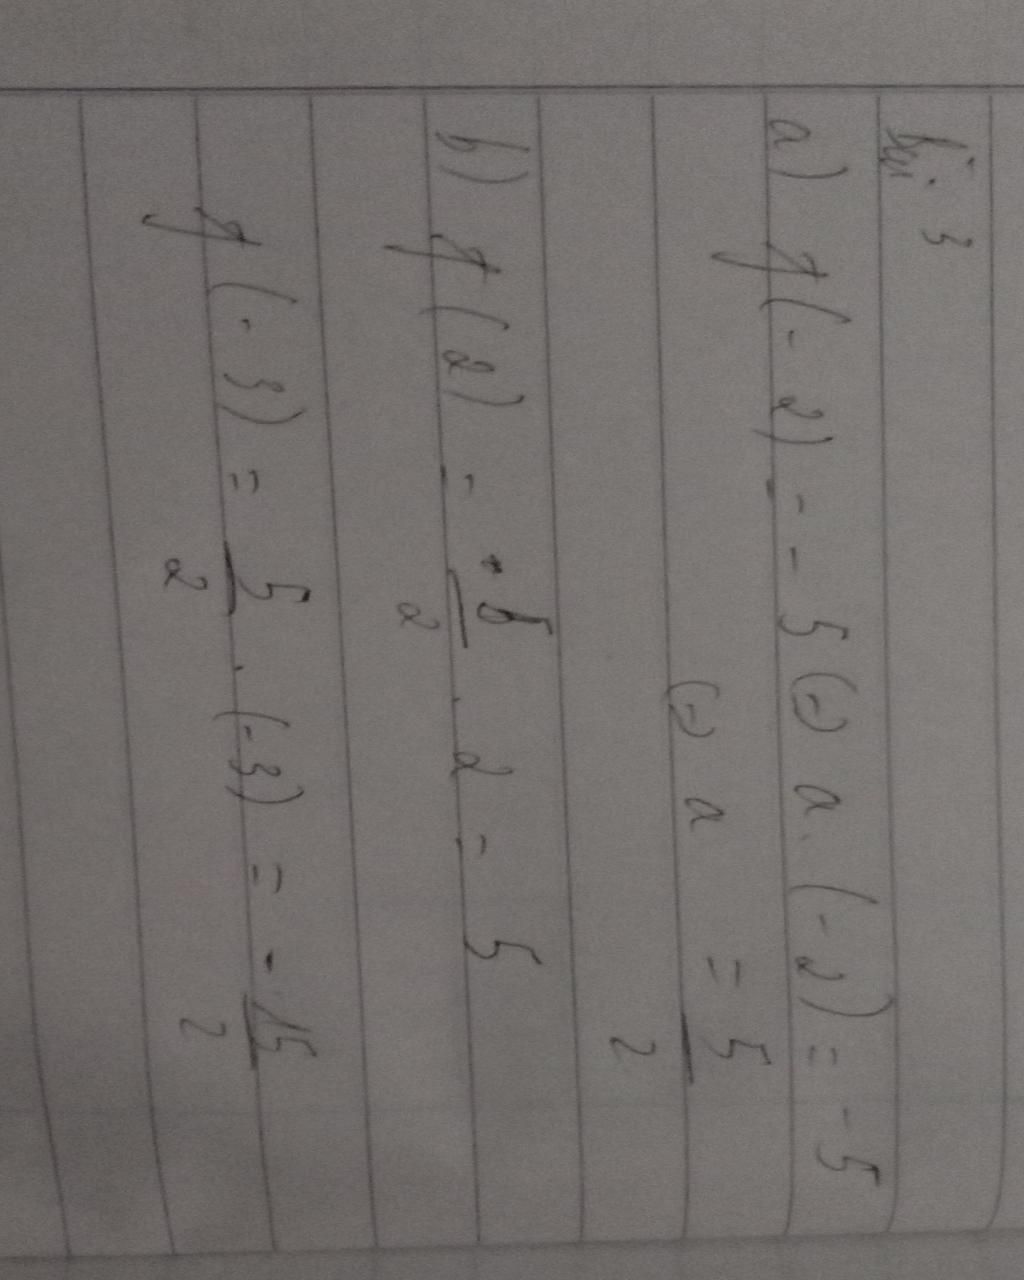 Bài 3
a) f(-2) = -5 (=) a. (-2) = -5
(=) a = 5/2
b) f(2) = 5/2 . 2 = 5
f(-3) = 5/2 . (-3) = -15/2